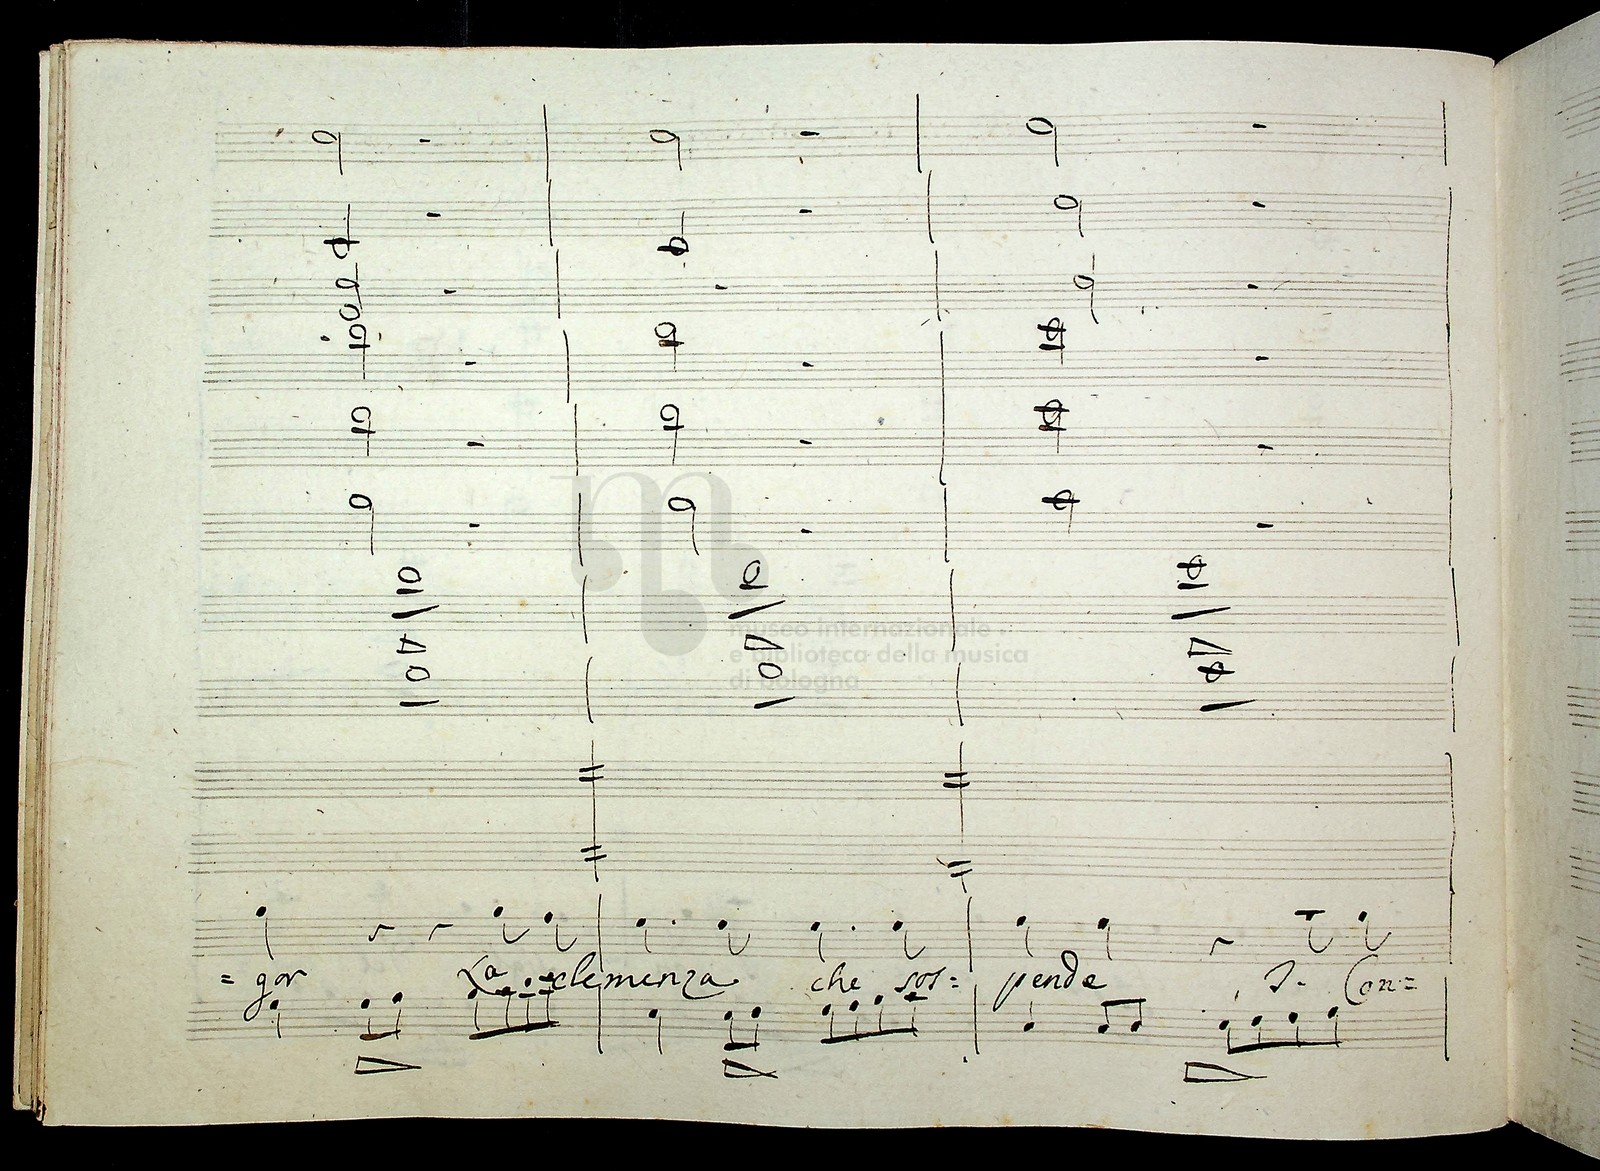 museo internazionale
e biblioteca della musica
di bologna
= gor La clemenza che sos= pende I. Con=